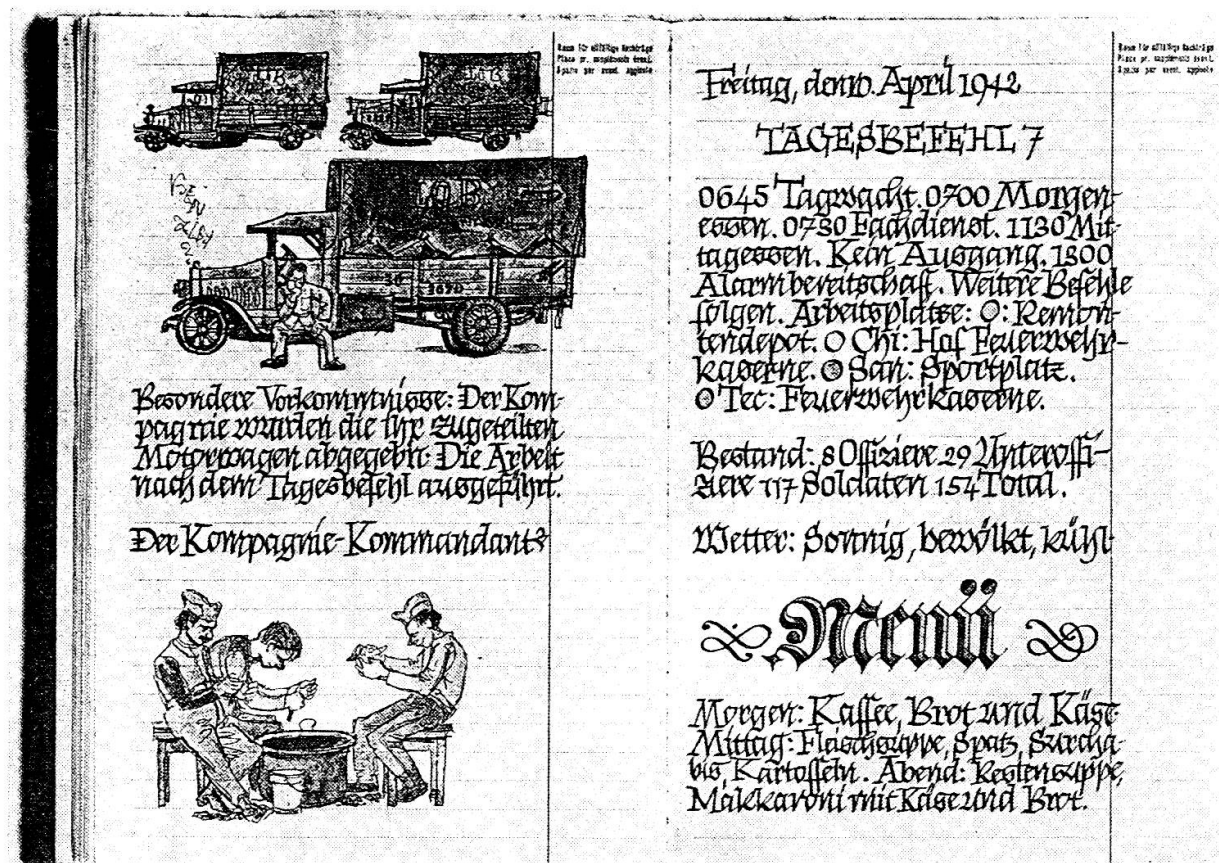 Raum für allfällige Nachträge
Place pr. suppléments évent.
Spazio per event. aggiunte
Besondere Vorkommnisse: Der Kom-
pagnie wurden die ihr zugeteilten
Motorwagen abgegeben. Die Arbeit
nach dem Tagesbefehl ausgeführt.
Der Kompagnie-Kommandant:
Raum für allfällige Nachträge
Place pr. suppléments évent.
Spazio per event. aggiunte
Freitag, den 10. April 1942
TAGESBEFEHL 7
0645 Tagwacht. 0700 Morgen-
essen. 0730 Fachdienst. 1130 Mit-
tagessen. Kein Ausgang. 1300
Alarmbereitschaft. Weitere Befehle
folgen. Arbeitsplätze: O: Remon-
tendepot. O Chi: Hof Feuerwehr-
kaserne. O San: Sportplatz.
O Tec: Feuerwehrkaserne.
Bestand: 8 Offiziere 29 Unteroffi-
ziere 117 Soldaten 154 Total.
Wetter: Sonnig, bewölkt, kühl
Menü
Morgen: Kaffee, Brot und Käse
Mittag: Fleischsuppe, Spatz, Surcha-
bis, Kartoffeln. Abend: Restensuppe,
Makkaroni mit Käse und Brot.